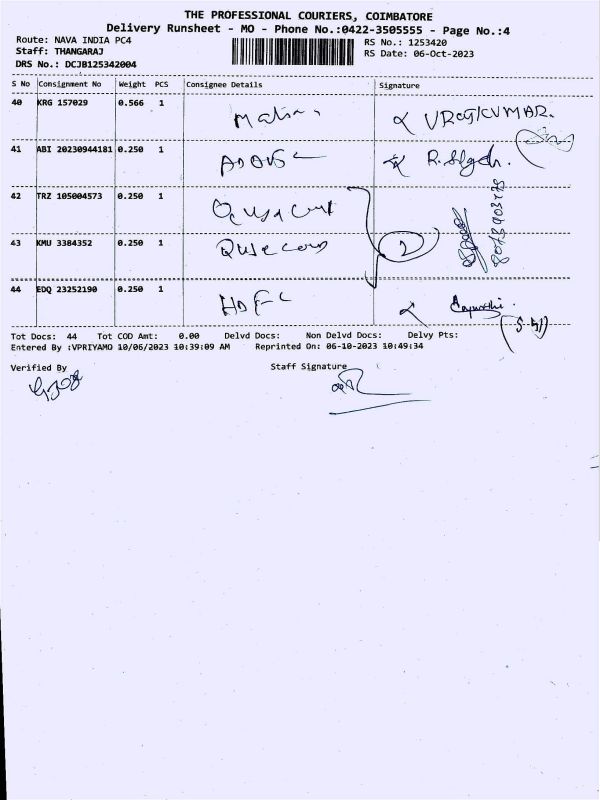 THE PROFESSIONAL COURIERS, COIMBATORE
Delivery Runsheet - MO - Phone No.:0422-3505555 - Page No.:4
Route: NAVA INDIA PC4
RS No.: 1253420
Staff: THANGARAJ
RS Date: 06-Oct-2023
DRS No.: DCJB125342004
S No Consignment No Weight PCS Consignee Details Signature
40 KRG 157029 0.566 1
41 ABI 20230944181 0.250 1
42 TRZ 105004573 0.250 1
43 KMU 3384352 0.250 1 2
44 EDQ 23252190 0.250 1 HDFC
Tot Docs: 44 Tot COD Amt: 0.00 Delvd Docs: Non Delvd Docs: Delvy Pts:
Entered By :VPRIYAMO 10/06/2023 10:39:09 AM Reprinted On: 06-10-2023 10:49:34
Verified By Staff Signature